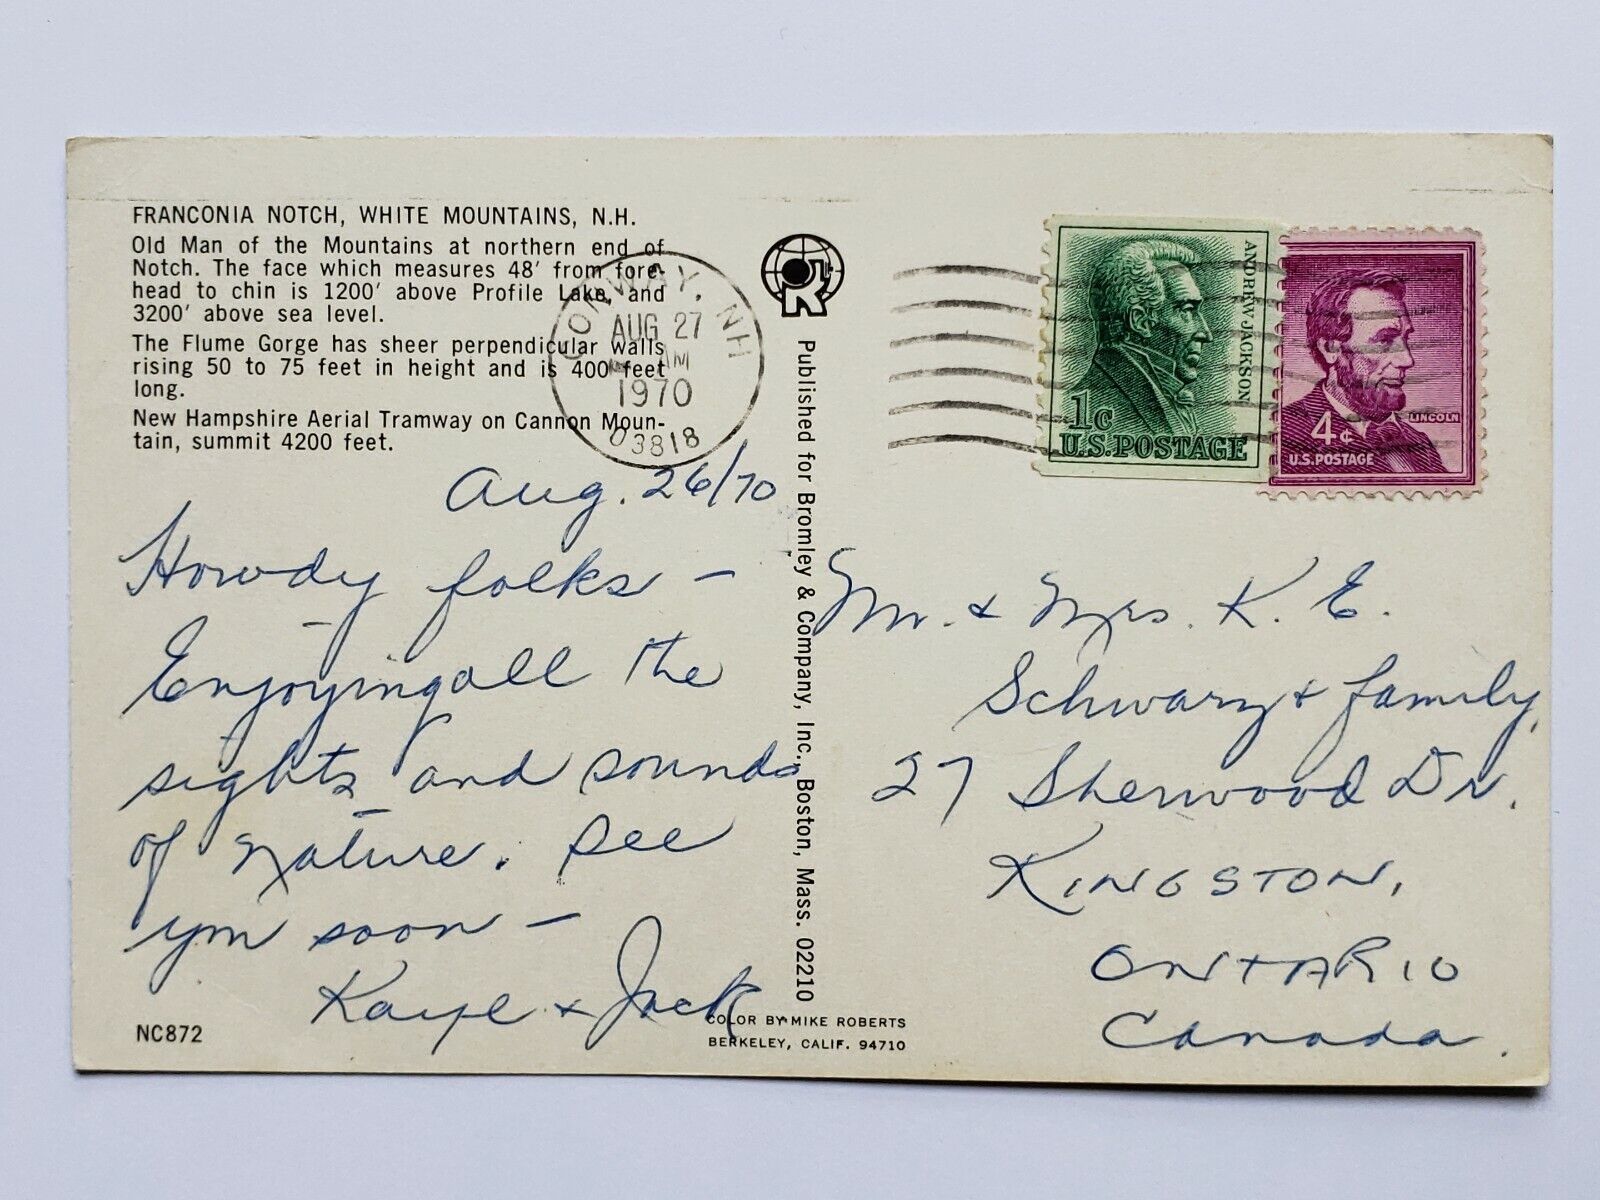 FRANCONIA NOTCH, WHITE MOUNTAINS, N.H.
Old Man of the Mountains at northern end of
Notch. The face which measures 48' from fore-
head to chin is 1200' above Profile Lake, and
3200' above sea level.
The Flume Gorge has sheer perpendicular walls
rising 50 to 75 feet in height and is 400 feet
long.
New Hampshire Aerial Tramway on Cannon Moun-
tain, summit 4200 feet.
CONWAY, NH
AUG 27
AM
1970
03818
Aug. 26/70
Howdy folks -
Enjoying all the
sights and sounds
of nature. See
you soon -
Kaye & Jack
NC872
Published for Bromley & Company, Inc., Boston, Mass. 02210
COLOR BY MIKE ROBERTS
BERKELEY, CALIF. 94710
ANDREW JACKSON
1c
U.S. POSTAGE
LINCOLN
4¢
U.S. POSTAGE
Mr. & Mrs. K. E.
Schwarz & family,
27 Sherwood Dr.
KINGSTON,
ONTARIO
Canada.